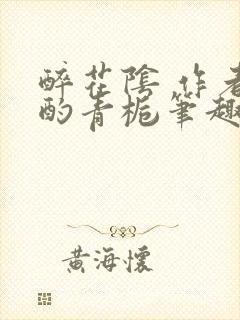 醉花陰 作者
酌青梔筆趣
黃海懷